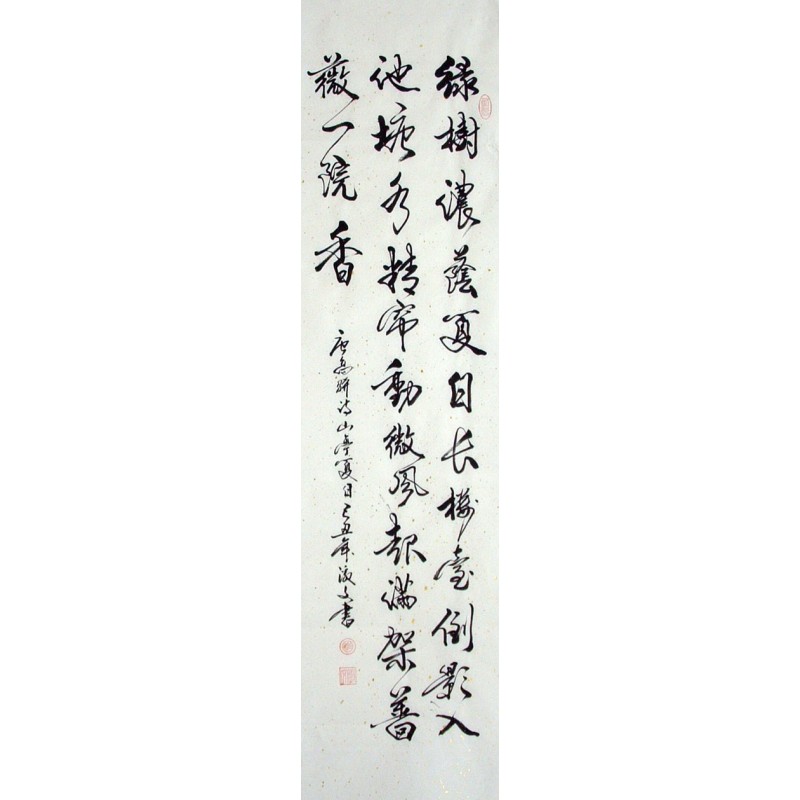 綠樹濃蔭夏日长樓臺倒影入
池塘水精帘動微風起滿架薔
薇一院香
唐高駢诗山亭夏日己丑年書